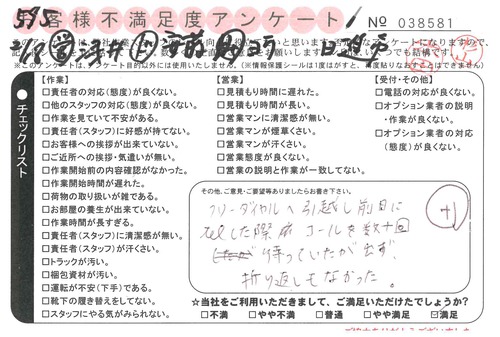 595
お客様不満足度アンケート
№ 038581
※このアンケートは、アンケート目的以外には使用いたしません。(※情報保護シールは1度はがすと、再度貼りなおすことはできません)
チェックリスト
【作業】
□責任者の対応(態度)が良くない。
□他のスタッフの対応(態度)が良くない。
□作業を見ていて不安がある。
□責任者(スタッフ)に好感が持てない。
□お客様への挨拶が出来ていない。
□ご近所への挨拶・気遣いが無い。
□作業開始前の内容確認がなかった。
□作業開始時間が遅れた。
□荷物の取り扱いが雑である。
□お部屋の養生が出来ていない。
□作業時間が長すぎる。
□責任者(スタッフ)に清潔感が無い。
□責任者(スタッフ)が汗くさい。
□トラックが汚い。
□梱包資材が汚い。
□運転が不安(下手)である。
□靴下の履き替えをしてない。
□スタッフにやる気がみられない。
【営業】
□見積もり時間に遅れた。
□見積もり時間が長い。
□営業マンに清潔感が無い。
□営業マンが煙草くさい。
□営業マンが汗くさい。
□営業態度が良くない。
□営業の説明と作業が一致してない。
【受付・その他】
□電話の対応が良くない。
□オプション業者の説明
・作業が良くない。
□オプション業者の対応
(態度)が良くない。
その他、ご意見・ご要望等ありましたらお書き下さい。
フリーダイヤルへ引越し前日に
TELした際 コールを数十回
待っていたが出ず、
折り返しもなかった。
+1
☆当社をご利用いただきまして、ご満足いただけたでしょうか?
□不満 □やや不満 □普通 □やや満足 ☑満足